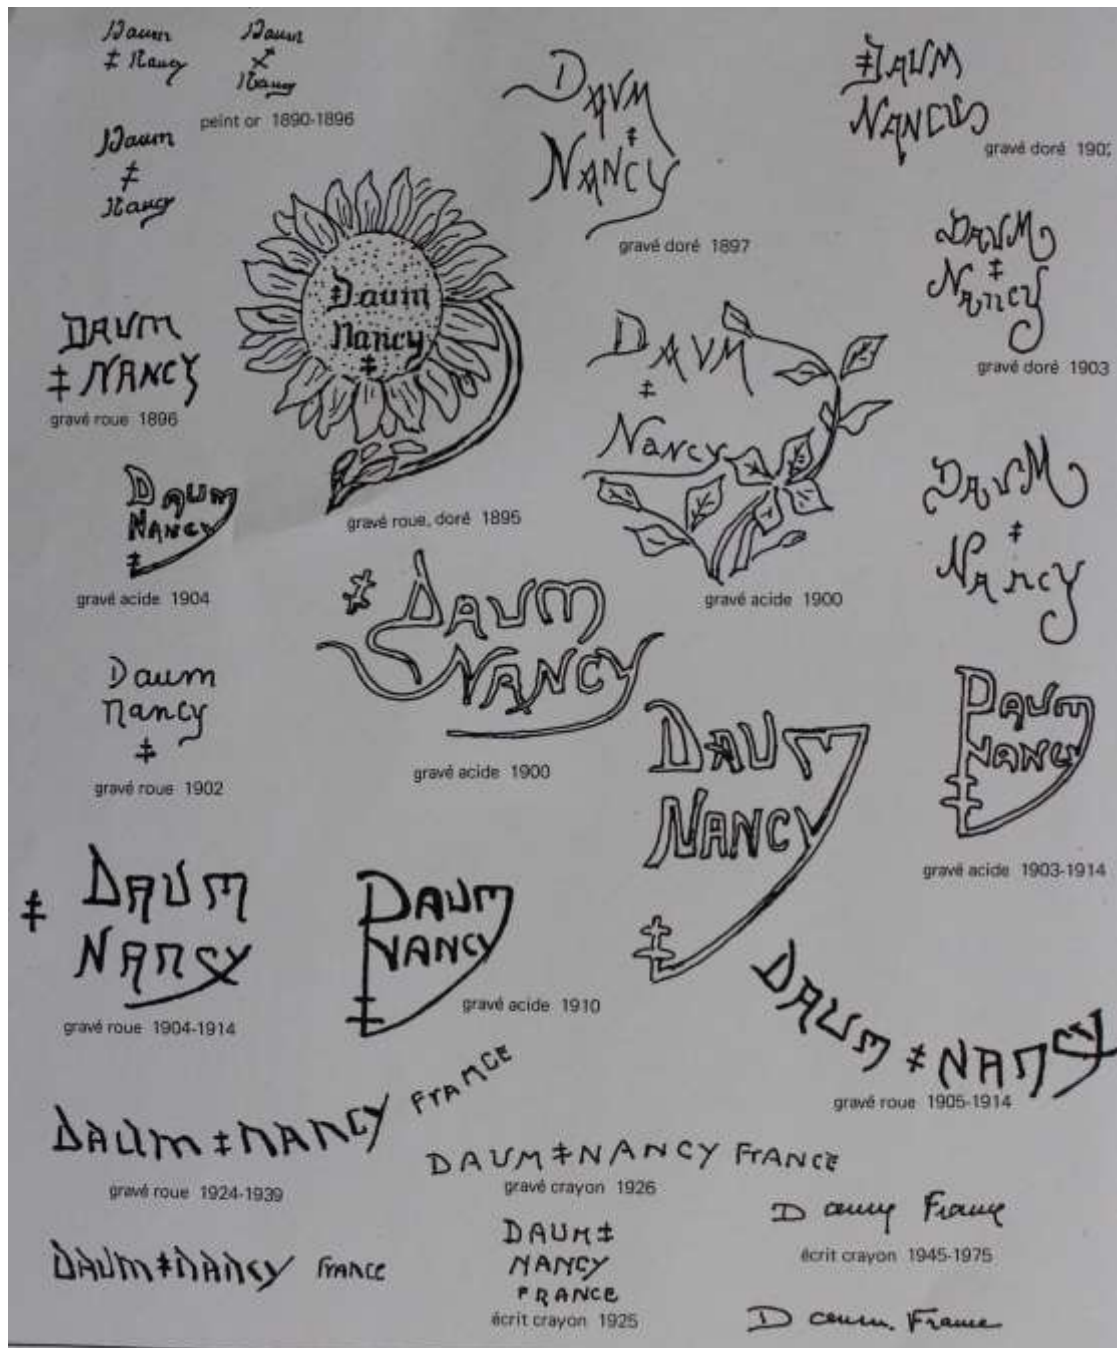 Daum
‡ Nancy
Daum
‡
Nancy
peint or 1890-1896
Daum
‡
Nancy
DAUM
‡
NANCY
gravé doré 1897
‡DAUM
NANCY
gravé doré 190
DAUM
‡
NANCY
gravé doré 1903
Daum
Nancy
‡
gravé roue, doré 1895
DAUM
‡ NANCY
gravé roue 1896
DAUM
‡
Nancy
gravé acide 1900
DAUM
NANCY
‡
gravé acide 1904
DAUM
‡
NANCY
‡ DAUM
NANCY
gravé acide 1900
Daum
Nancy
‡
gravé roue 1902
DAUM
NANCY
‡
DAUM
NANCY
‡
gravé acide 1903-1914
‡ DAUM
NANCY
gravé roue 1904-1914
DAUM
NANCY
‡
gravé acide 1910
DAUM ‡ NANCY
gravé roue 1905-1914
DAUM ‡ NANCY FRANCE
gravé roue 1924-1939
DAUM ‡ NANCY FRANCE
gravé crayon 1926
DAUM ‡ NANCY FRANCE
DAUM ‡
NANCY
FRANCE
écrit crayon 1925
Daum France
écrit crayon 1945-1975
Daum France